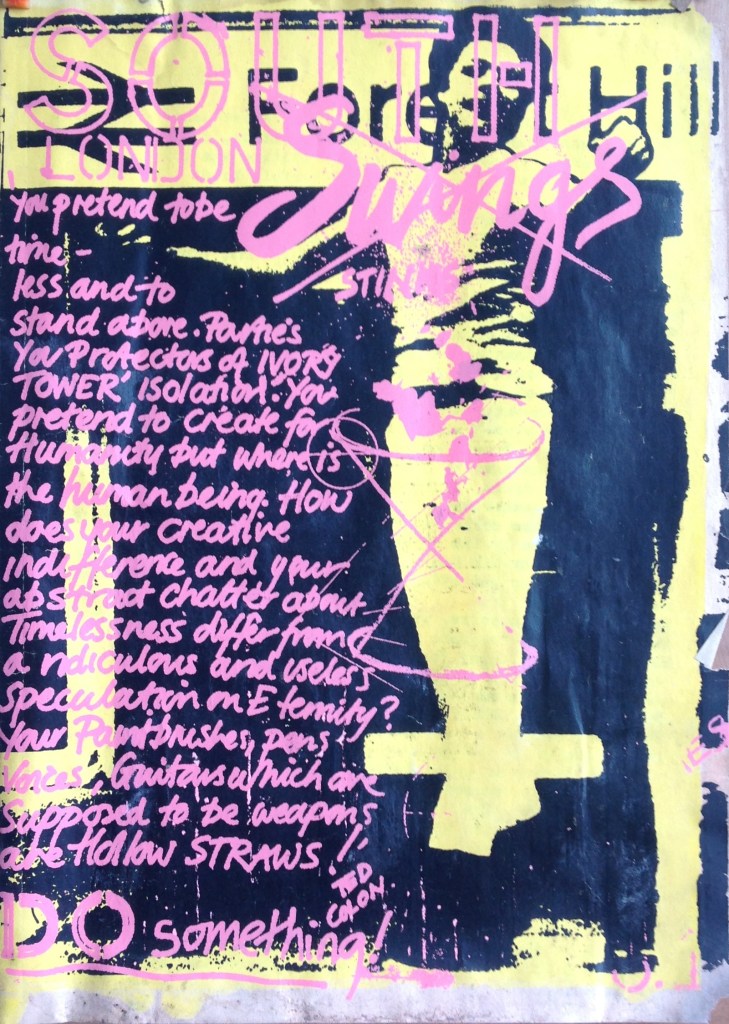 SOUTH
Forest Hill
LONDON
Swings
STINKS
You pretend to be
time-
less and to
stand above. Parties
You Protectors of IVORY
TOWER' isolation. You
pretend to create for
Humanity but where is
the human being. How
does your creative
indifference and your
abstract chatter about
Timelessness differ from
a ridiculous and useless
speculation on Eternity?
Your Paintbrushes, pens
Voices, Guitars which are
supposed to be weapons
are Hollow STRAWS!
TED
COLON
DO something!